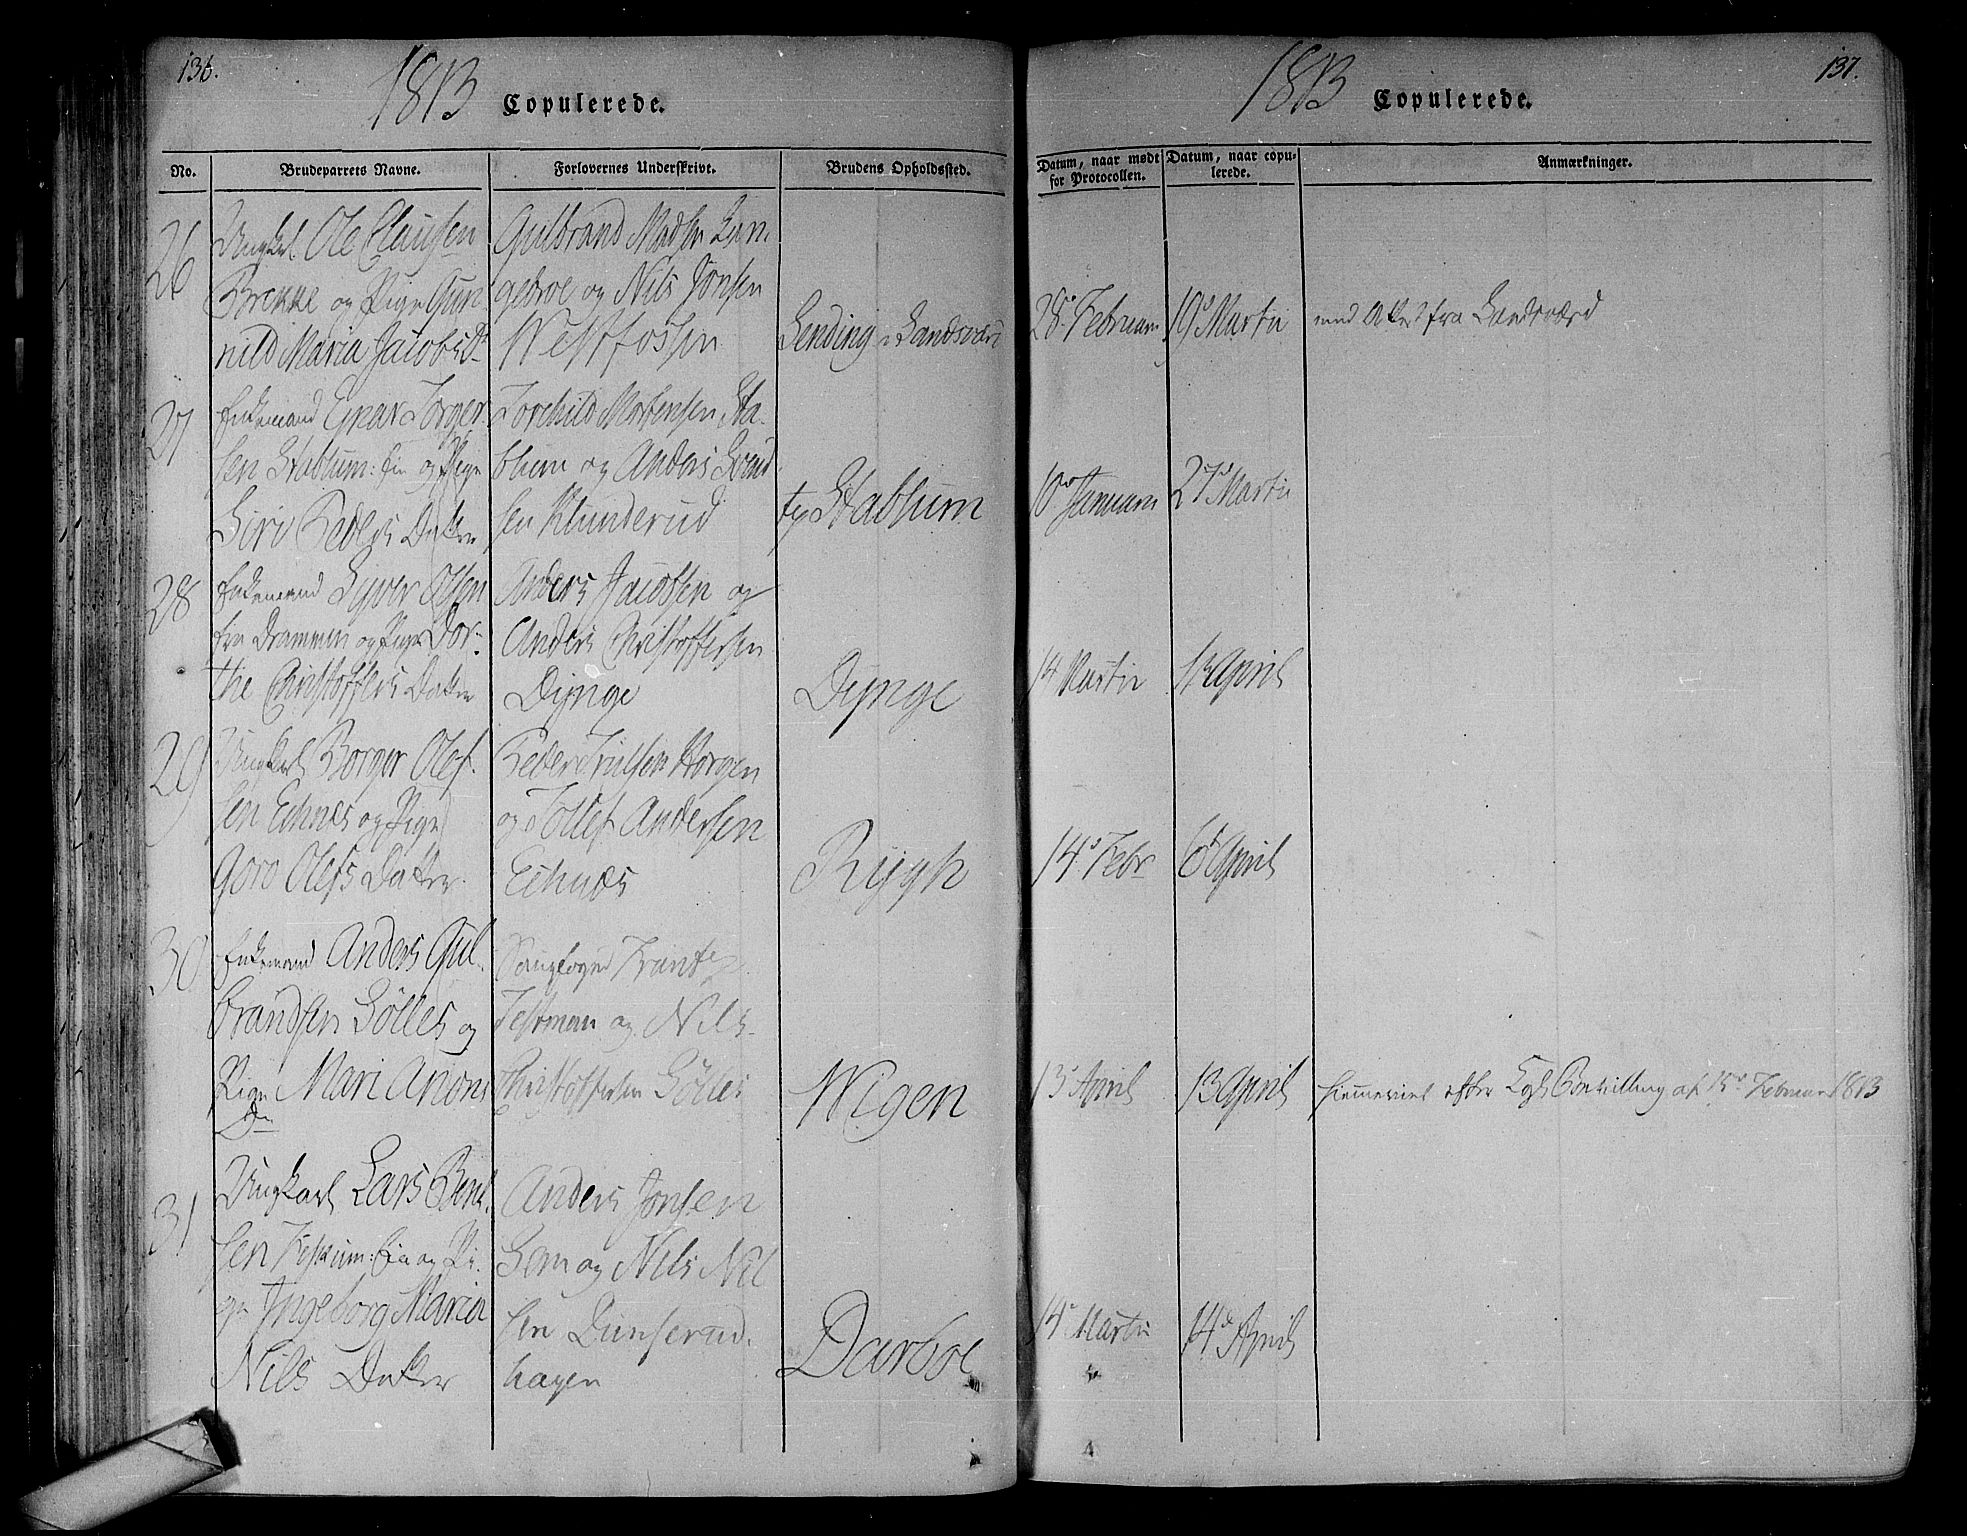 136.
1813
Copulerede.
No.
Brudeparrets Navne.
Forlovernes Underskrivt.
Brudens Opholdssted.
26
Ungkarl Ole Clausen
Brekke og Pige Gun
nild Maria Jacobs Dr
Gulbrand Madsen Lan
gedroe og Nils Jonsen
Westfossen
Sending i Sandsværd
27
Enkemand Ejnar Torger
sen Stablum: Eie og Pige
Siri Peders Datter
Torchild Mortensen Sta
blum og Anders Svend
sen Klunderud
Stablum
28
Enkemand Syver Olsen
fra Drammen og Pige Dor-
the Christoffers Datter
Anders Jacobsen og
Anders Christoffersen
Dynge
Dynge
29
Ungkarl Borger Olef-
sen Echnæs og Pige
Goro Olefs Datter
Peder Trulsen Horgen
og Tollef Andersen
Echnæs
Rygh
30
Enkemand Anders Gul-
brandsen Sölles og
Pige Mari Anons
Dr
Frantz
Festman og Nils
Christoffersen Sölles
Wigen
31
Ungkarl Lars Bent-
sen Feskum: Eie og Pi-
ge Ingeborg Maria
Nils Datter
Anders Jonsen
Sem og Nils Nil
sen Dunserud-
hagen
Darboe
1813
Copulerede.
137.
Datum, naar mødt
for Protocollen.
Datum, naar copu-
lerede.
Anmærkninger.
28. Februarii
19 Martii
med Attest fra Sandsværd
10 Januarii
27 Martii
14 Martii
13 April
14. Febr
6 April
13 April
13 April
efter Kgl. Bevilling af 15 Februar 1813
14 Martii
14 April